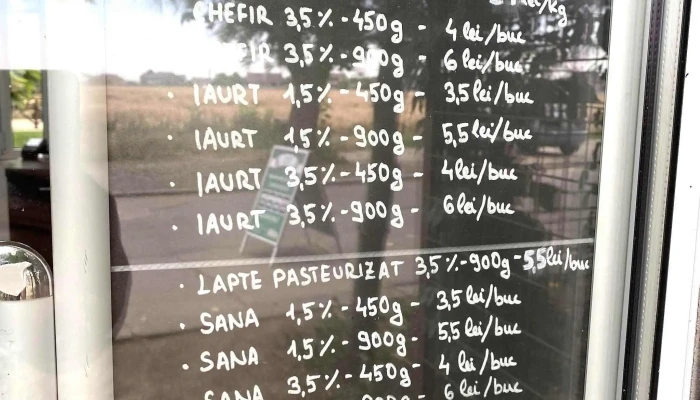 lei/kg
CHEFIR 3,5% - 450g - 4 lei/buc
CHEFIR 3,5% - 900g - 6 lei/buc
· IAURT 1,5% - 450g - 3,5 lei/buc
· IAURT 1,5% - 900g - 5,5 lei/buc
· IAURT 3,5% - 450g - 4 lei/buc
· IAURT 3,5% - 900g - 6 lei/buc
· LAPTE PASTEURIZAT 3,5% - 900g - 5,5 lei/buc
· SANA 1,5% - 450g - 3,5 lei/buc
· SANA 1,5% - 900g - 5,5 lei/buc
SANA 3,5% - 450g - 4 lei/buc
6 lei/buc